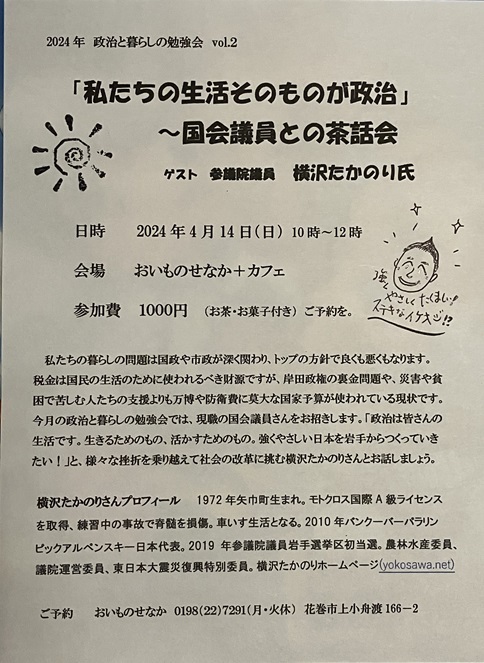 2024年 政治と暮らしの勉強会 vol.2
「私たちの生活そのものが政治」
～国会議員との茶話会
ゲスト 参議院議員 横沢たかのり氏
日時 2024年4月14日(日) 10時～12時
会場 おいものせなか＋カフェ
参加費 1000円 （お茶・お菓子付き）ご予約を。
強く
やさしく たくましい!
ステキなイケオジ!?
私たちの暮らしの問題は国政や市政が深く関わり、トップの方針で良くも悪くもなります。
税金は国民の生活のために使われるべき財源ですが、岸田政権の裏金問題や、災害や貧
困で苦しむ人たちの支援よりも万博や防衛費に莫大な国家予算が使われている現状です。
今月の政治と暮らしの勉強会では、現職の国会議員さんをお招きします。「政治は皆さんの
生活です。生きるためのもの、活かすためのもの。強くやさしい日本を岩手からつくっていき
たい！」と、様々な挫折を乗り越えて社会の改革に挑む横沢たかのりさんとお話しましょう。
横沢たかのりさんプロフィール 1972年矢巾町生まれ。モトクロス国際A級ライセンス
を取得、練習中の事故で脊髄を損傷。車いす生活となる。2010年バンクーバーパラリン
ピックアルペンスキー日本代表。2019年参議院議員岩手選挙区初当選。農林水産委員、
議院運営委員、東日本大震災復興特別委員。横沢たかのりホームページ(yokosawa.net)
ご予約 おいものせなか 0198(22)7291(月・火休) 花巻市上小舟渡166－2